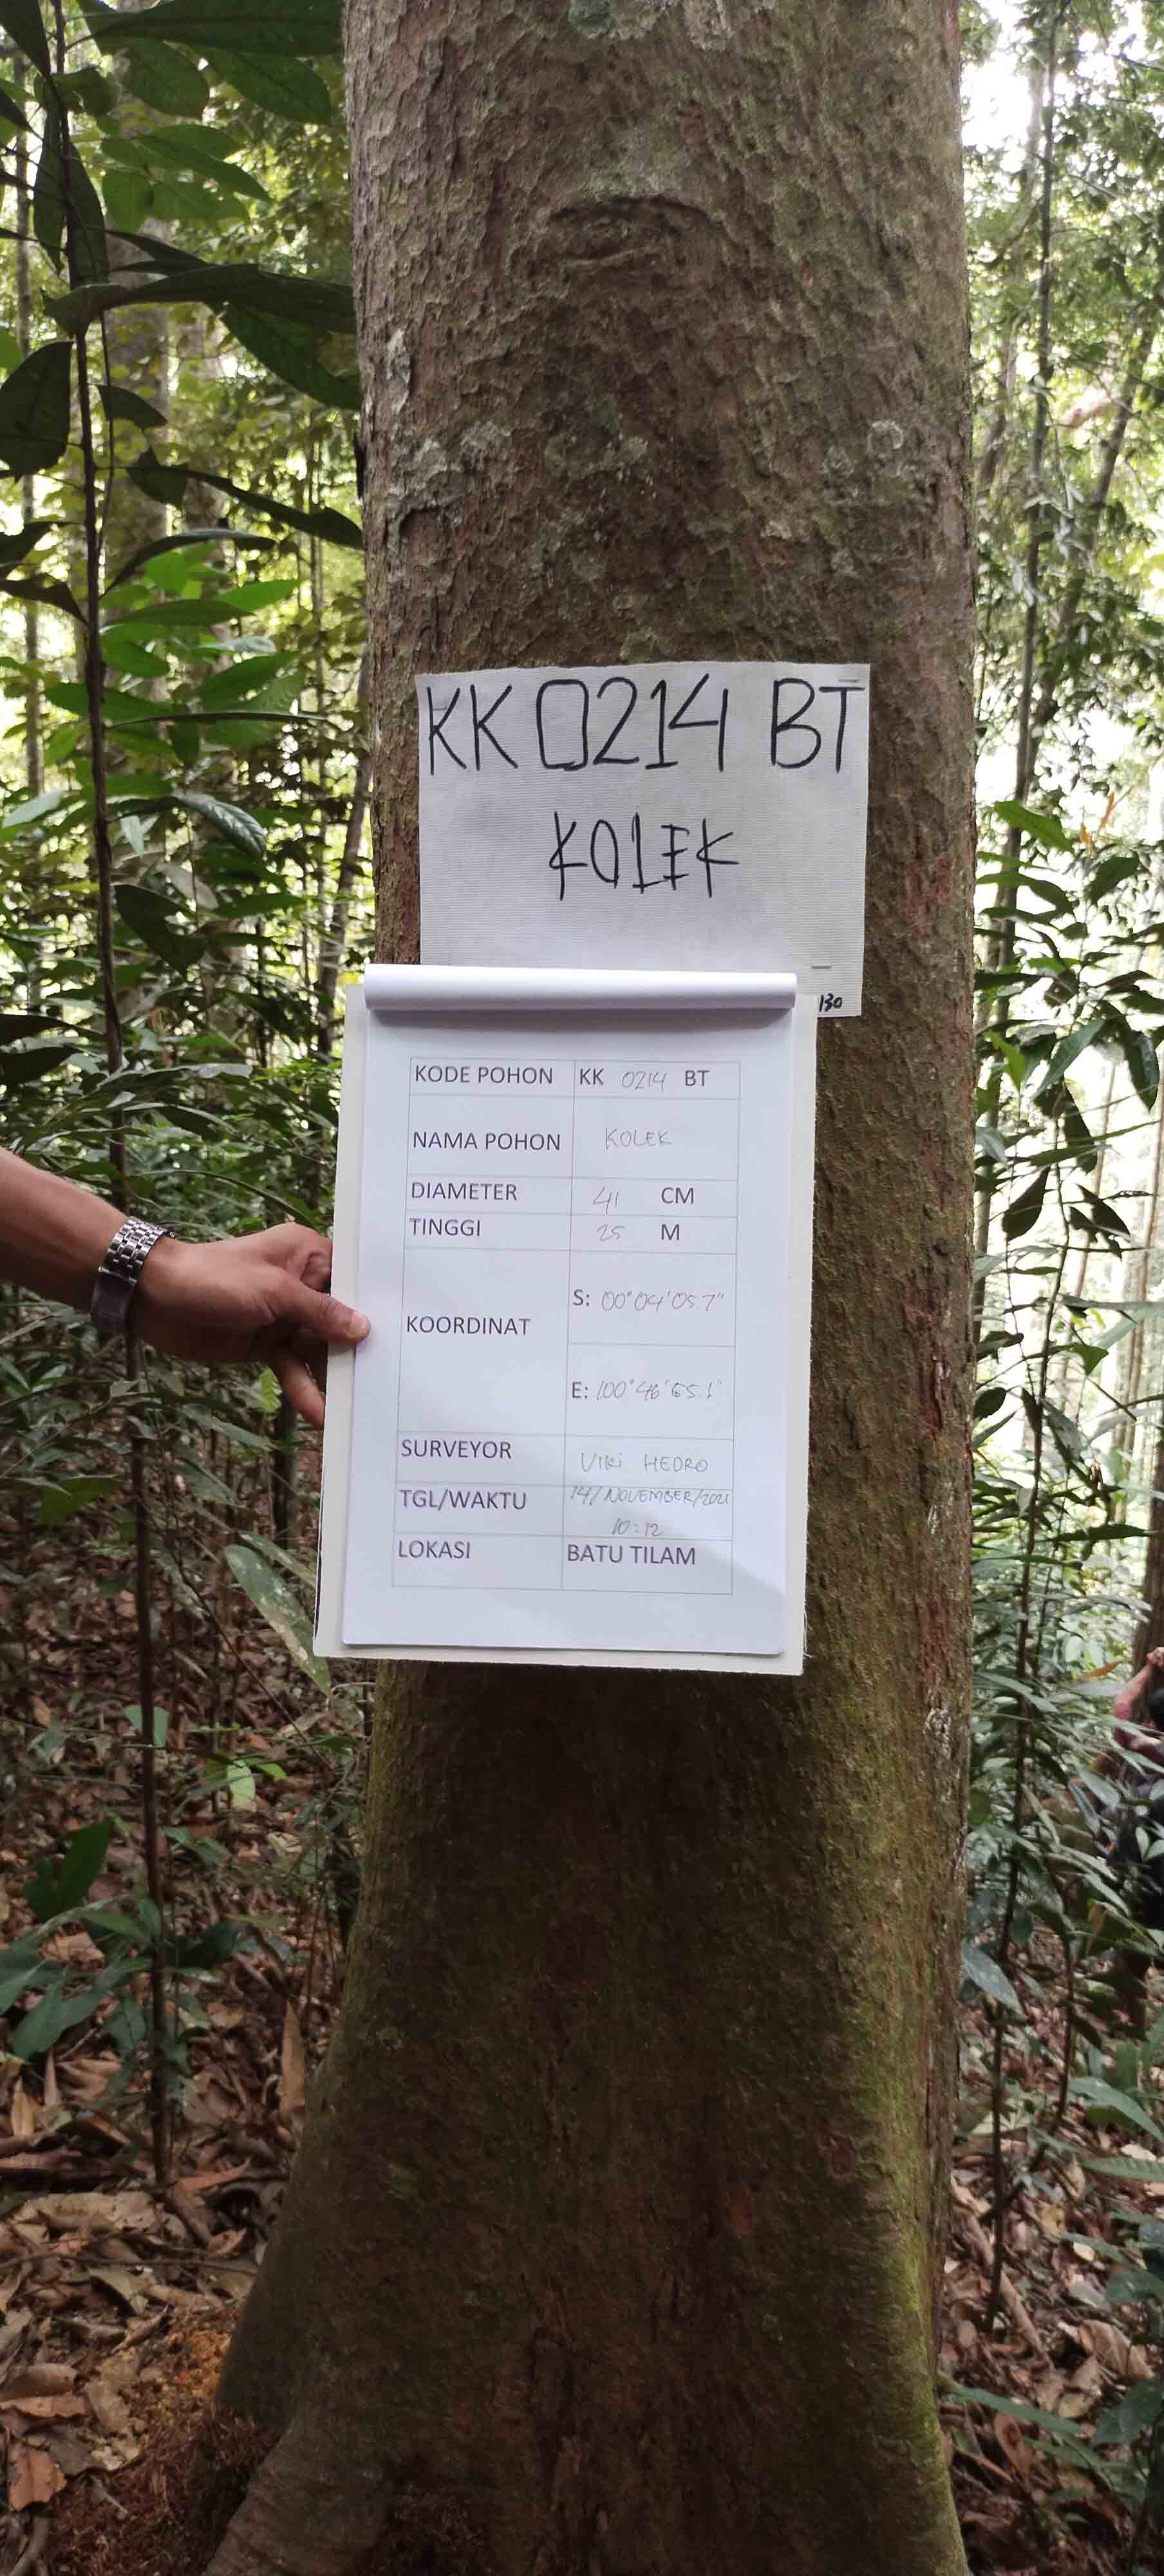 KK 0214 BT
KOLEK
130
KODE POHON KK 0214 BT
NAMA POHON KOLEK
DIAMETER 41 CM
TINGGI 25 M
KOORDINAT
S: 00°04'05.7"
E: 100°46'
SURVEYOR VIKI HEDRO
TGL/WAKTU 14/NOVEMBER/2021
10:12
LOKASI BATU TILAM